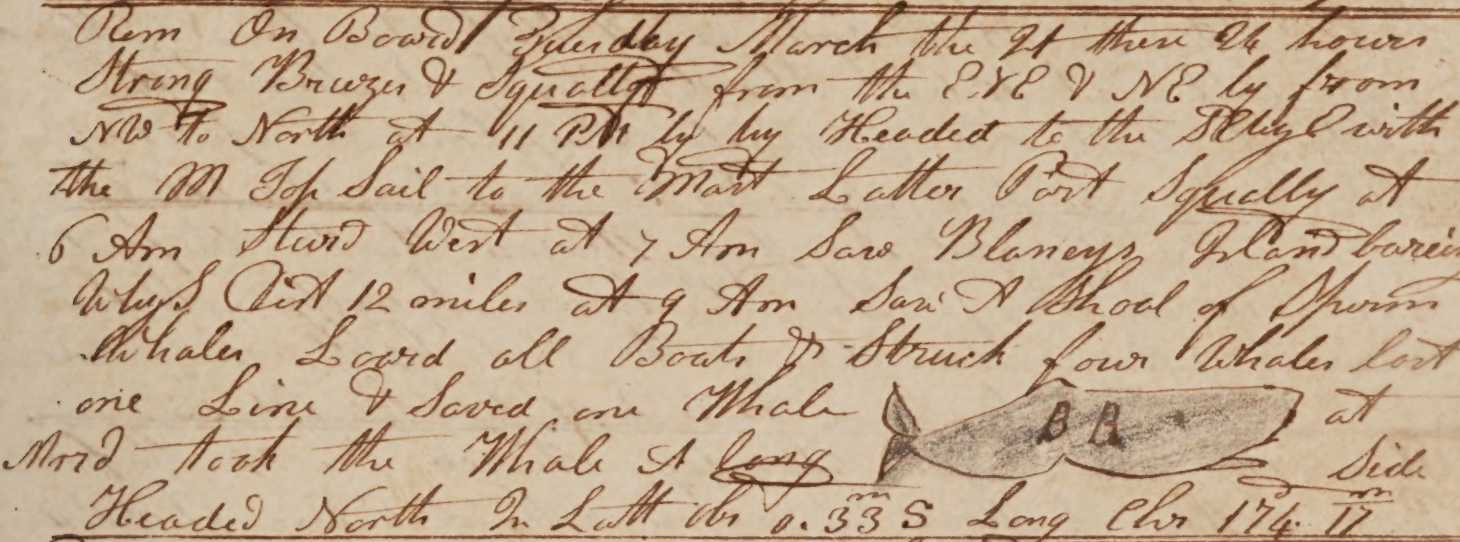 Rem On Board Tuesday March the 21 these 24 hours
Strong Breezes & Squally from the ENE & NE by from
NW to North at 11 PM by by Headed to the with
the M Top Sail to the Mast Latter Part Squally at
6 Am Sterd West at 7 Am Saw Blaneys Island bareing
WbyS Dist 12 miles at 9 Am Saw A Shoal of Sperm
Whales Loard all Boats & Struck four Whales lost
one Line & Saved one Whale B B at
Mrid took the Whale A long Side
Headed North In Latt obs 0.33 S Long Chr 174 17